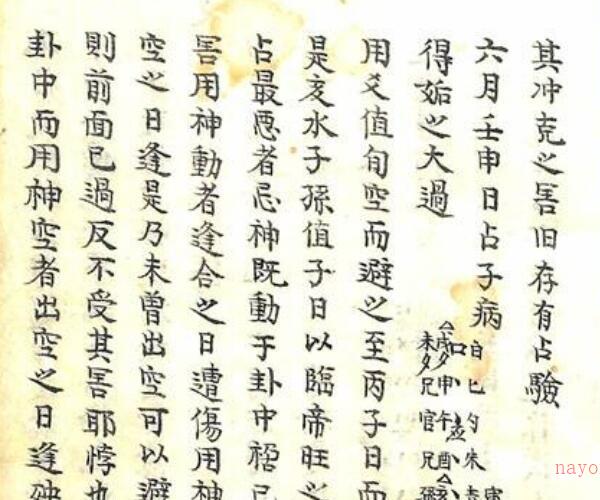 其冲克之害旧存有占驗
六月壬申日占子病
得姤之大過
用爻值旬空而避之至丙子日而
是亥水子孫值子日以臨帝旺之
占最惡者忌神既動于卦中禍已
害用神動者逢合之日遭傷用神
空之日逢是乃未曾出空可以避
則前面已過反不受其害耶悖也
卦中而用神空者出空之日逢冲
nayo